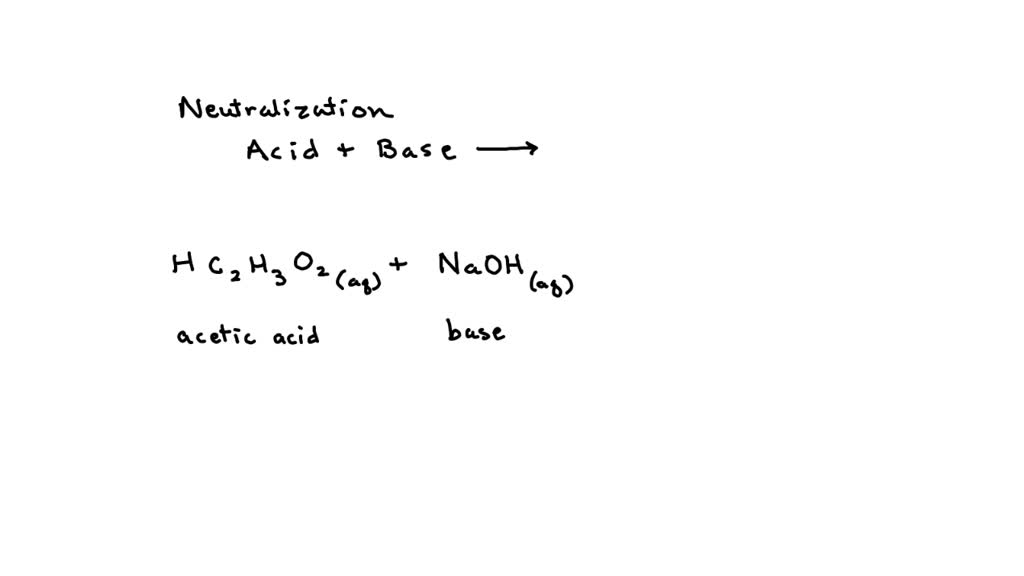 Neutralization
Acid + Base ⟶
H C₂H₃O₂(aq) + NaOH(aq)
acetic acid base